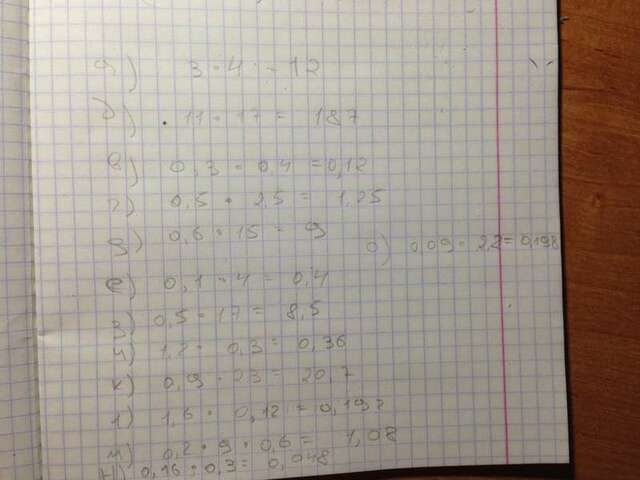 а) 3 · 4 = 12
б) 11 · 17 = 187
в) 0,3 · 0,4 = 0,12
г) 0,5 · 2,5 = 1,25
д) 0,6 · 15 = 9
о) 0,09 · 2,2 = 0,198
е) 0,1 · 4 = 0,4
з) 0,5 · 17 = 8,5
и) 1,2 · 0,3 = 0,36
к) 0,9 · 23 = 20,7
л) 1,6 · 0,12 = 0,192
м) 0,2 · 9 · 0,6 = 1,08
н) 0,16 · 0,3 = 0,048